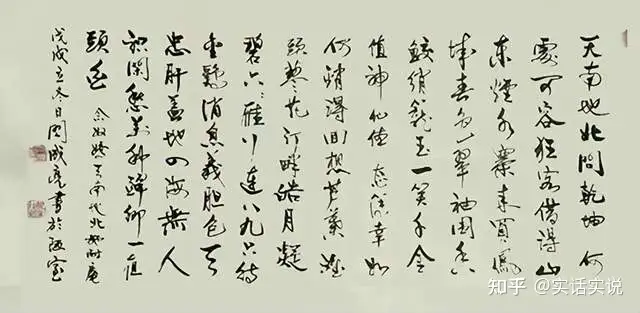 天南地北問乾坤何
處可容狂客借得山
東煙水寨來買鳳
城春色翠袖圍香
鮫綃籠玉一笑千金
值神仙体態薄幸如
何消得回想芦葉灘
頭蓼花汀畔皓月凝
碧六六雁行連八九只待
金鷄消息義膽包天
忠肝蓋地四海無人
識閑愁萬種醉鄉一夜
頭白
念奴嬌天南地北施耐庵
戊戌立冬日成亮書於陋室
知乎 @实话实说